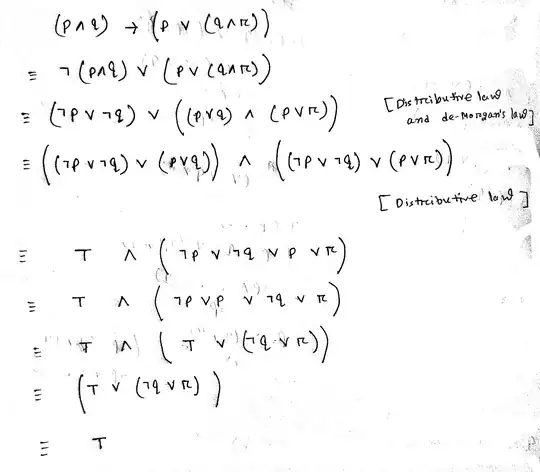 (p ∧ q) → (p ∨ (q ∧ r))
≡ ¬(p ∧ q) ∨ (p ∨ (q ∧ r))
≡ (¬p ∨ ¬q) ∨ ((p ∨ q) ∧ (p ∨ r)) [Distributive law
and de-Morgan's law]
≡ ((¬p ∨ ¬q) ∨ (p ∨ q)) ∧ ((¬p ∨ ¬q) ∨ (p ∨ r))
[Distributive law]
≡ T ∧ (¬p ∨ ¬q ∨ p ∨ r)
≡ T ∧ (¬p ∨ p ∨ ¬q ∨ r)
≡ T ∧ (T ∨ (¬q ∨ r))
≡ (T ∨ (¬q ∨ r))
≡ T